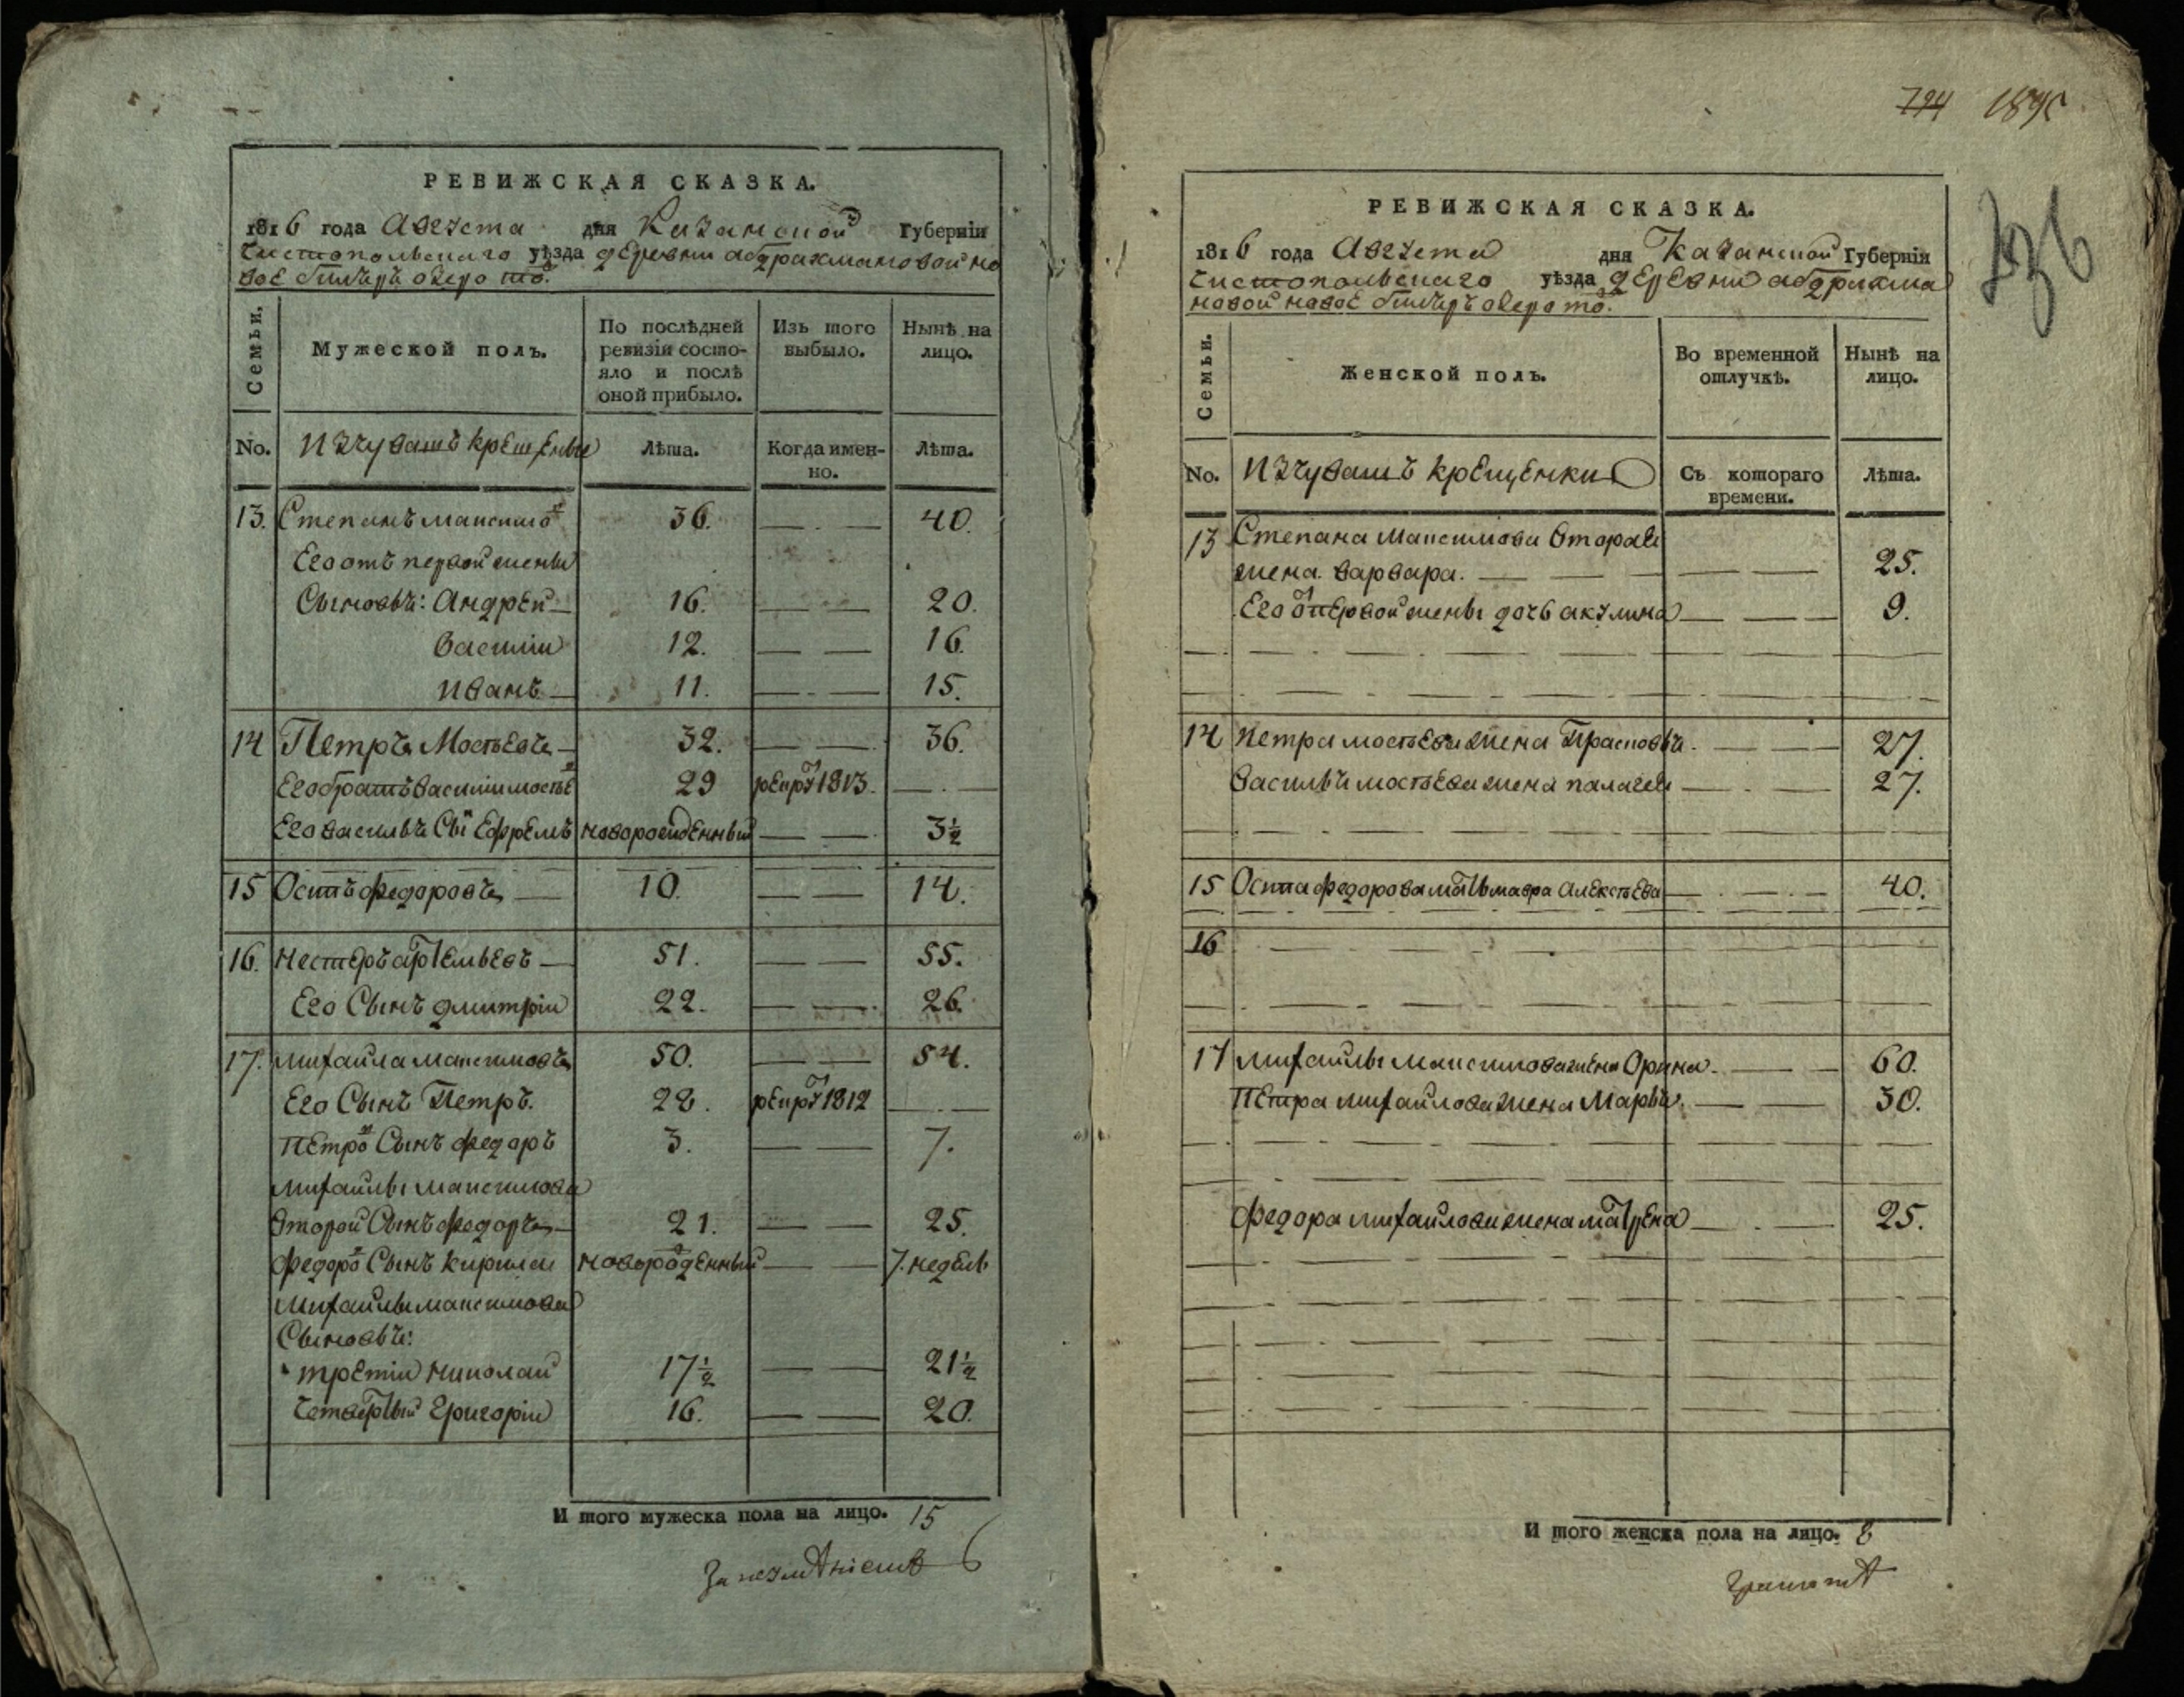 РЕВИЖСКАЯ СКАЗКА.
1816 года Августа дня Казанской Губернїи
Чистопольскаго уѣзда деревни абдрахмановой но
вое бимѣръ озеро тó.
Семьи.
Мужеской полъ.
По послѣдней ревизїи состо-яло и послѣ оной прибыло.
Изъ того выбыло.
Нынѣ на лицо.
No.
Изчувашъ крещены
Лѣта.
Когда имен-но.
Лѣта.
13. Степанъ максимов 36. 40.
Его отъ первой жены
Сыновья: Андрей 16. 20.
Василии 12. 16.
Иванъ 11. 15.
14 Петръ Мостьевъ 32. 36.
Его братъ василии мостье 29 рекрут 1813.
Его василья Сын Ефремъ новорожденный 3½
15 Осипъ федоровъ 10. 14.
16. Нестеръ артемьевъ 51. 55.
Его Сынъ дмитрїи 22. 26.
17. михаила максимовъ 50. 54.
Его Сынъ Петръ. 28. рекрут 1812
Петров Сынъ федоръ 3. 7.
михаилы максимова
второй Сынъ федоръ 21. 25.
федоров Сынъ кирила новорожденный 7. недель
михаилы максимова
Сыновья:
третїи николаи 17½ 21½
четвертый Григорїи 16. 20.
И того мужеска пола на лицо. 15
724 1895
РЕВИЖСКАЯ СКАЗКА.
1816 года Августа дня Казанской Губернїи
Чистопольскаго уѣзда деревни абдрахма
новой новое бимѣръ озеро тó.
Семьи.
Женской полъ.
Во временной отлучкѣ.
Нынѣ на лицо.
No.
Изчувашъ крещенки
Съ котораго времени.
Лѣта.
13 Степана максимова вторая
жена варвара. 25.
Его от первой жены дочь акулина 9.
14 Петра мостьева жена Прасковья. 27.
Василья мостьева жена палагея 27.
15 Осипа федорова мать мавра алексѣева 40.
16
17 михаилы максимова жена Орина 60.
Петра михаилова жена Марья. 30.
федора михаилова жена матрена 25.
И того женска пола на лицо. 8